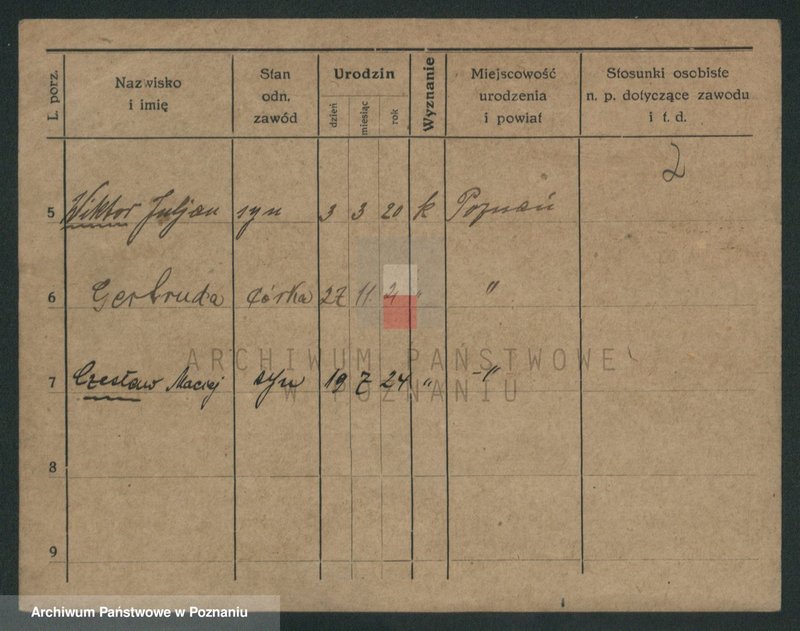 L. porz. Nazwisko i imię Stan odn. zawód Urodzin dzień miesiąc rok Wyznanie Miejscowość urodzenia i powiat Stosunki osobiste n. p. dotyczące zawodu i t. d.
2
5 Wiktor Juljan syn 3 3 20 k Poznań
6 Gertruda córka 27 11 21 " "
ARCHIWUM PAŃSTWOWE
7 Czesław Maciej syn 19 7 24 " -"
W POZNANIU
8
9
Archiwum Państwowe w Poznaniu